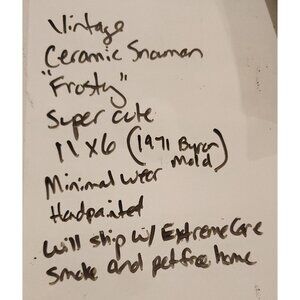 Vintage
Ceramic Snowman
"Frosty"
Super cute
11 X 6 (1971 Byron Mold)
Minimal wear
Handpainted
Will ship w/ Extreme Care
Smoke and pet free home